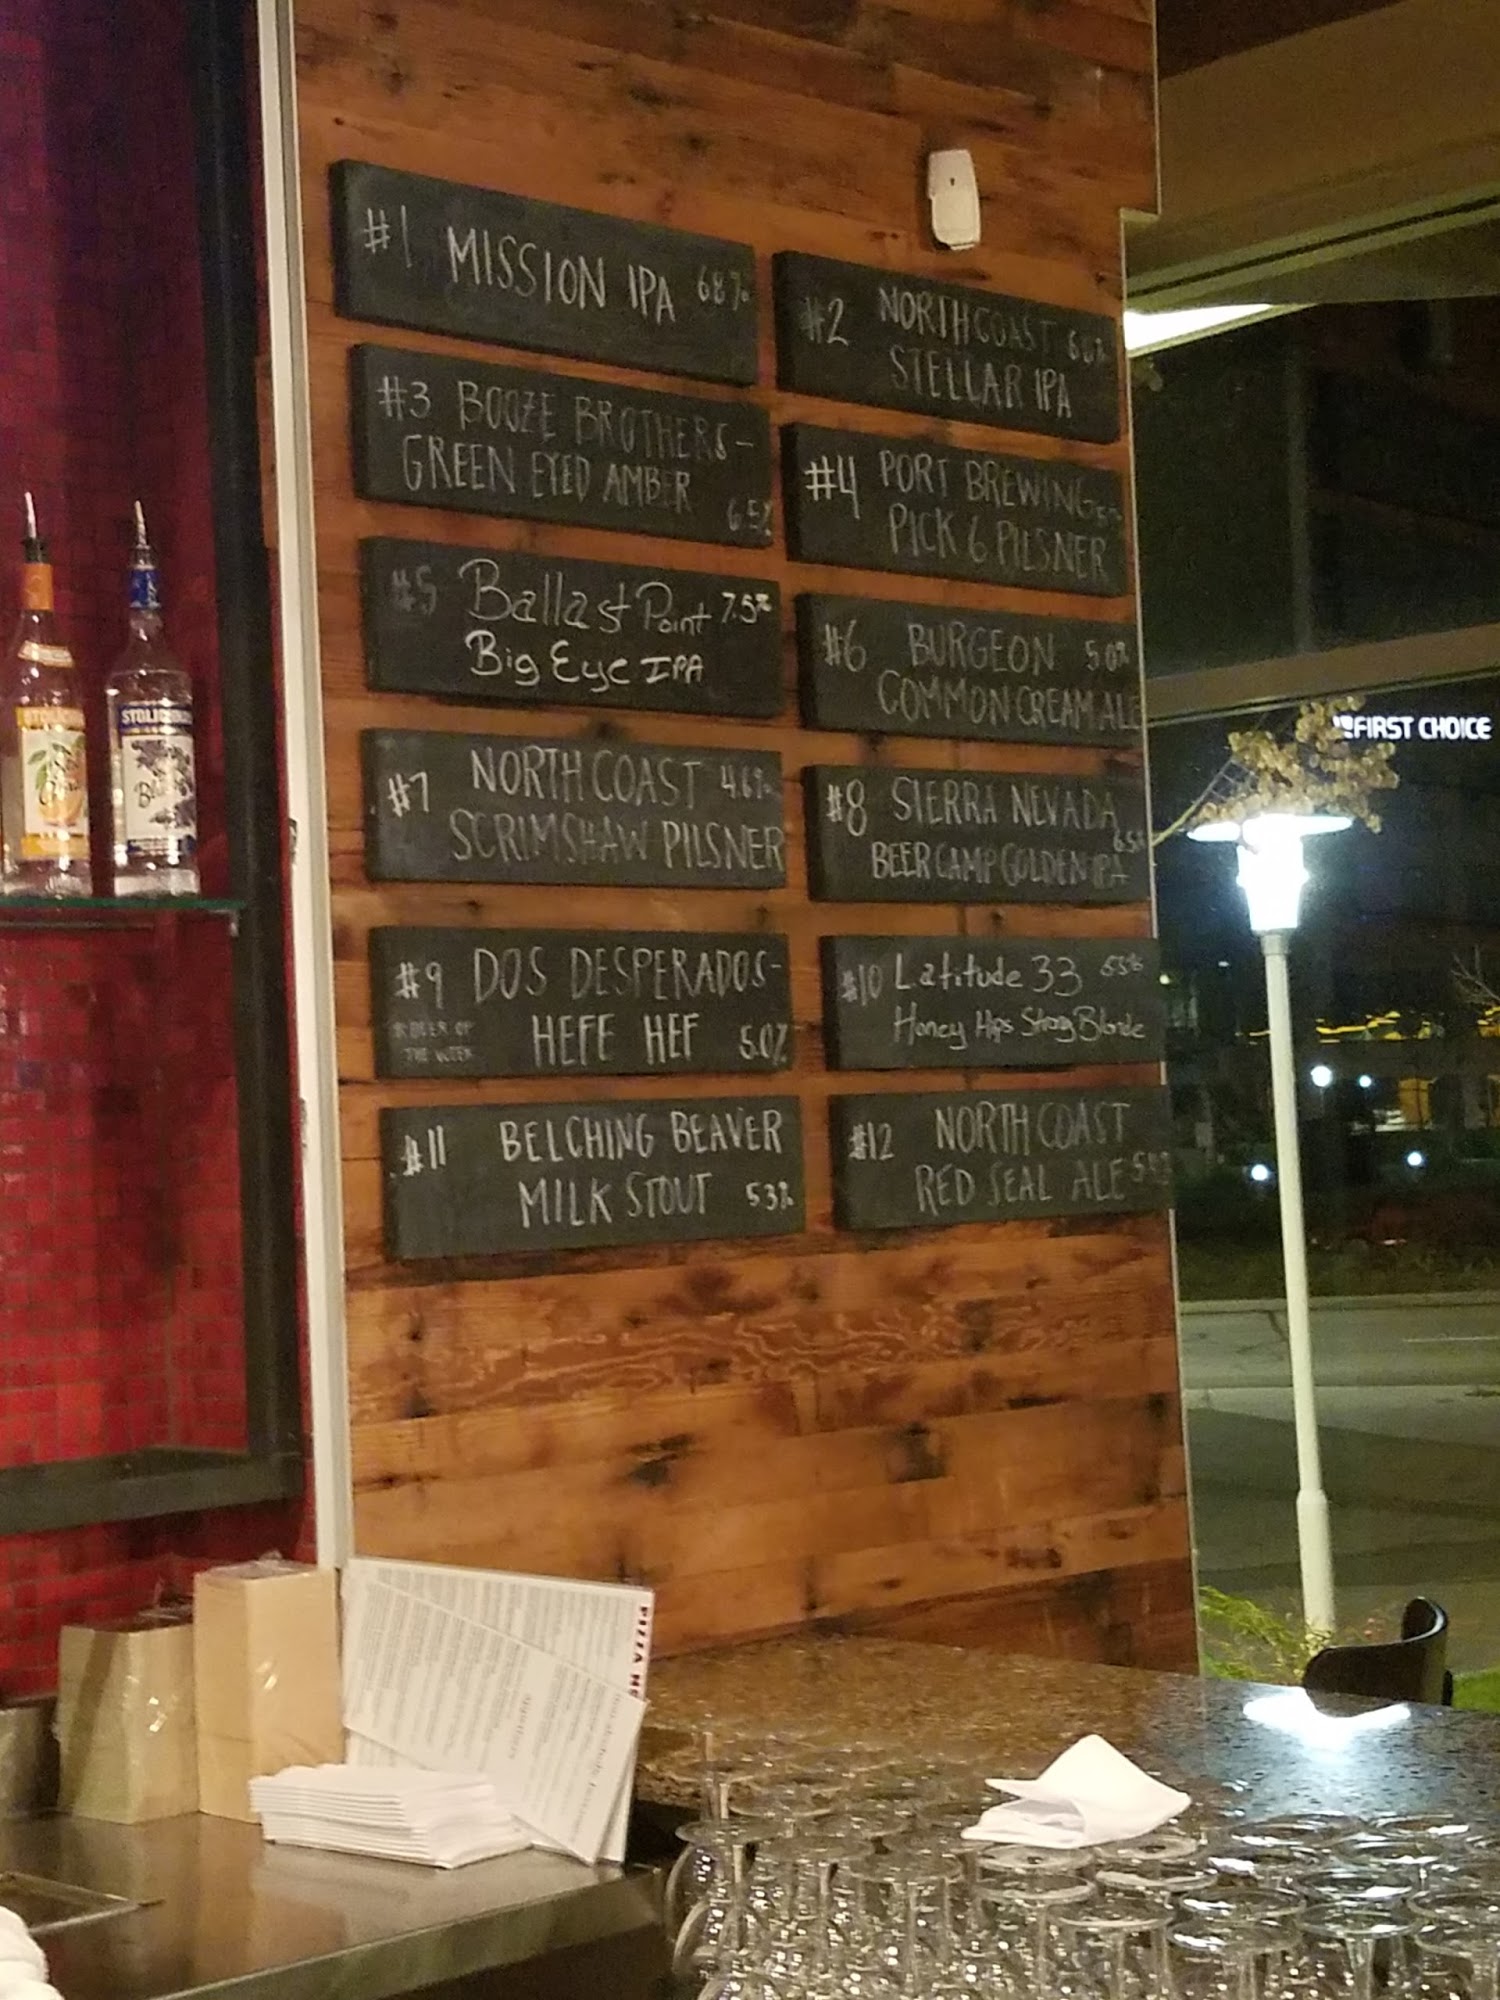 #1 MISSION IPA 6.8%
#2 NORTH COAST
STELLAR IPA
#3 BOOZE BROTHERS-
GREEN EYED AMBER
6.5%
#4 PORT BREWING
PICK 6 PILSNER
#5 Ballast Point 7.5%
Big Eye IPA
#6 BURGEON 5.0%
COMMON CREAM ALE
#7 NORTH COAST 4.6%
SCRIMSHAW PILSNER
#8 SIERRA NEVADA
BEER CAMP GOLDEN IPA 6.5%
#9 DOS DESPERADOS-
HEFE HEF 5.0%
* BEER OF
THE WEEK
#10 Latitude 33
Honey Hips Strong Blonde
#11 BELCHING BEAVER
MILK STOUT 5.3%
#12 NORTH COAST
RED SEAL ALE
FIRST CHOICE
PIZZA